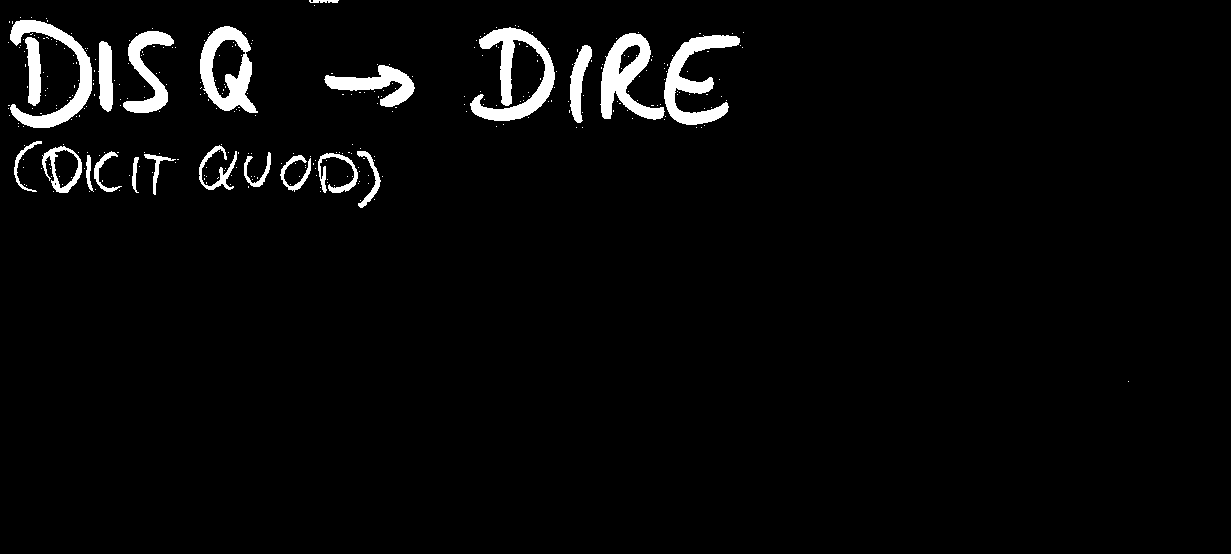 DISQ → DIRE
(DICIT QUOD)